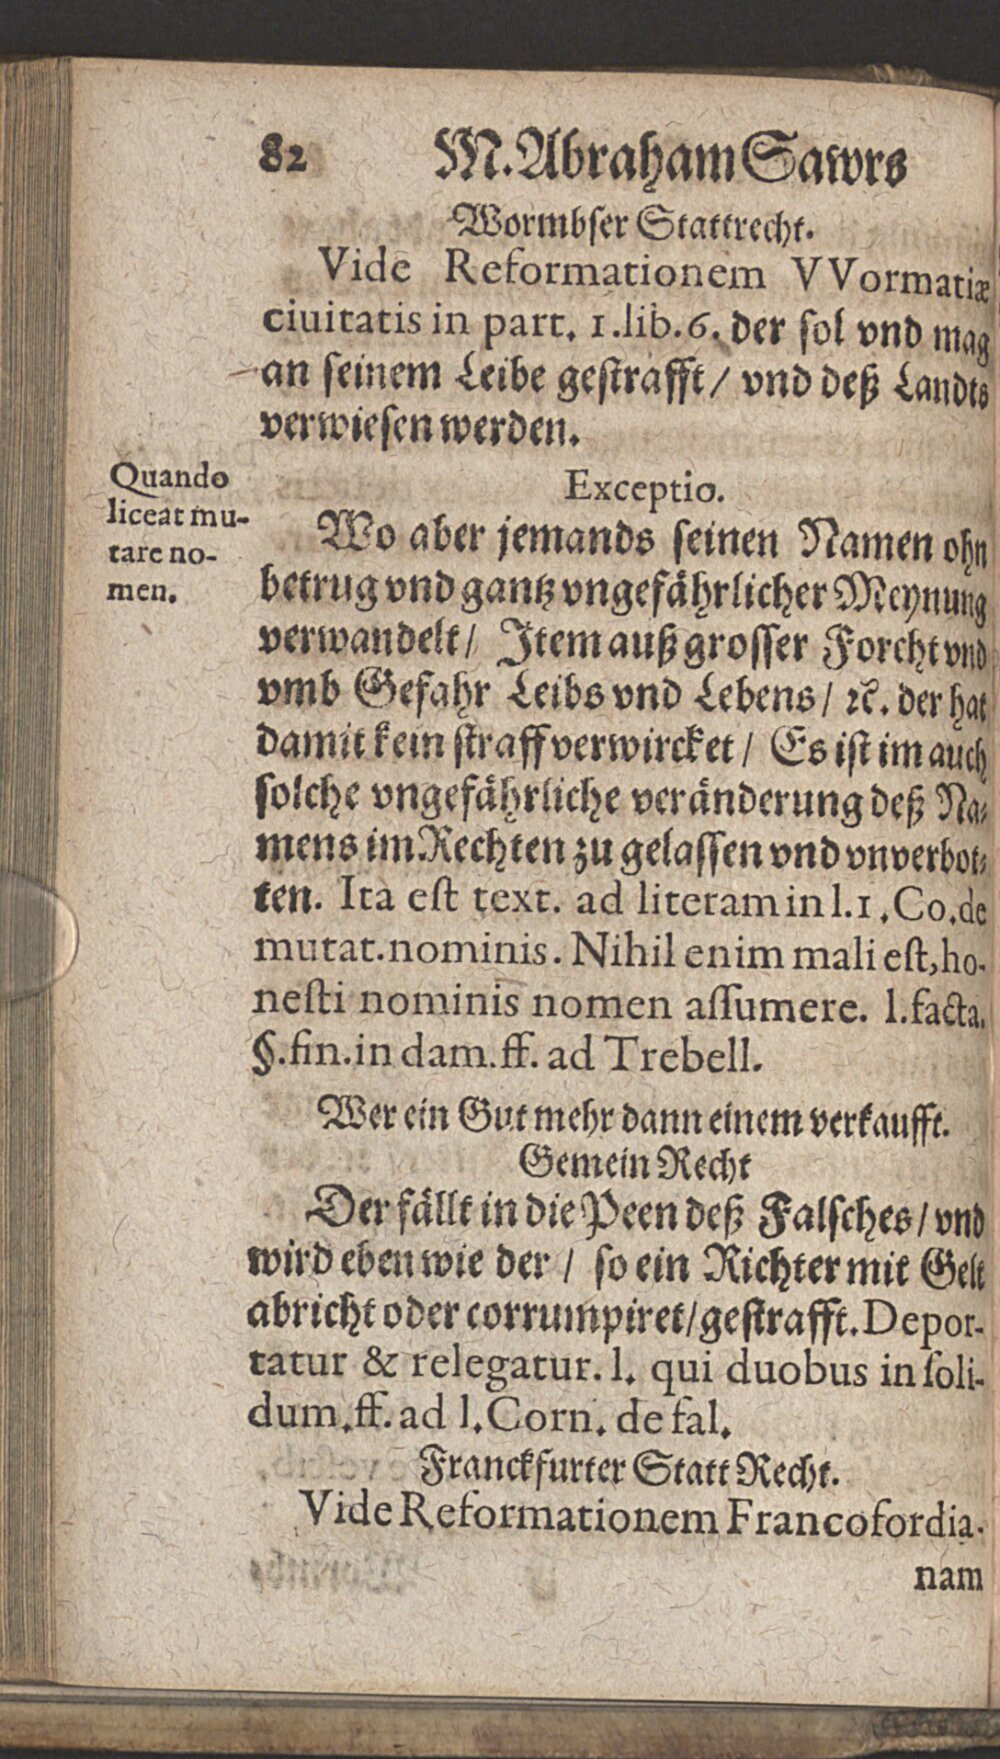 82 M. Abraham Sawrs
Wormbser Stattrecht.
Vide Reformationem VVormatiæ
ciuitatis in part. 1. lib. 6. der sol vnd mag
an seinem Leibe gestrafft / vnd deß Landts
verwiesen werden.
Exceptio.
Quando
liceat mu-
tare no-
men.
Wo aber jemands seinen Namen ohn
betrug vnd gantz vngefährlicher Meynung
verwandelt / Item auß grosser Forcht vnd
vmb Gefahr Leibs vnd Lebens / ꝛc. der hat
damit kein straff verwircket / Es ist im auch
solche vngefährliche veränderung deß Na-
mens im Rechten zu gelassen vnd vnverbot-
ten. Ita est text. ad literam in l. 1. Co. de
mutat. nominis. Nihil enim mali est, ho-
nesti nominis nomen assumere. l. facta.
§. fin. in dam. ff. ad Trebell.
Wer ein Gut mehr dann einem verkaufft.
Gemein Recht
Der fällt in die Peen deß Falsches / vnd
wird eben wie der / so ein Richter mit Gelt
abricht oder corrumpiret / gestrafft. Depor-
tatur & relegatur. l. qui duobus in soli-
dum. ff. ad l. Corn. de fal.
Franckfurter Statt Recht.
Vide Reformationem Francofordia-
nam